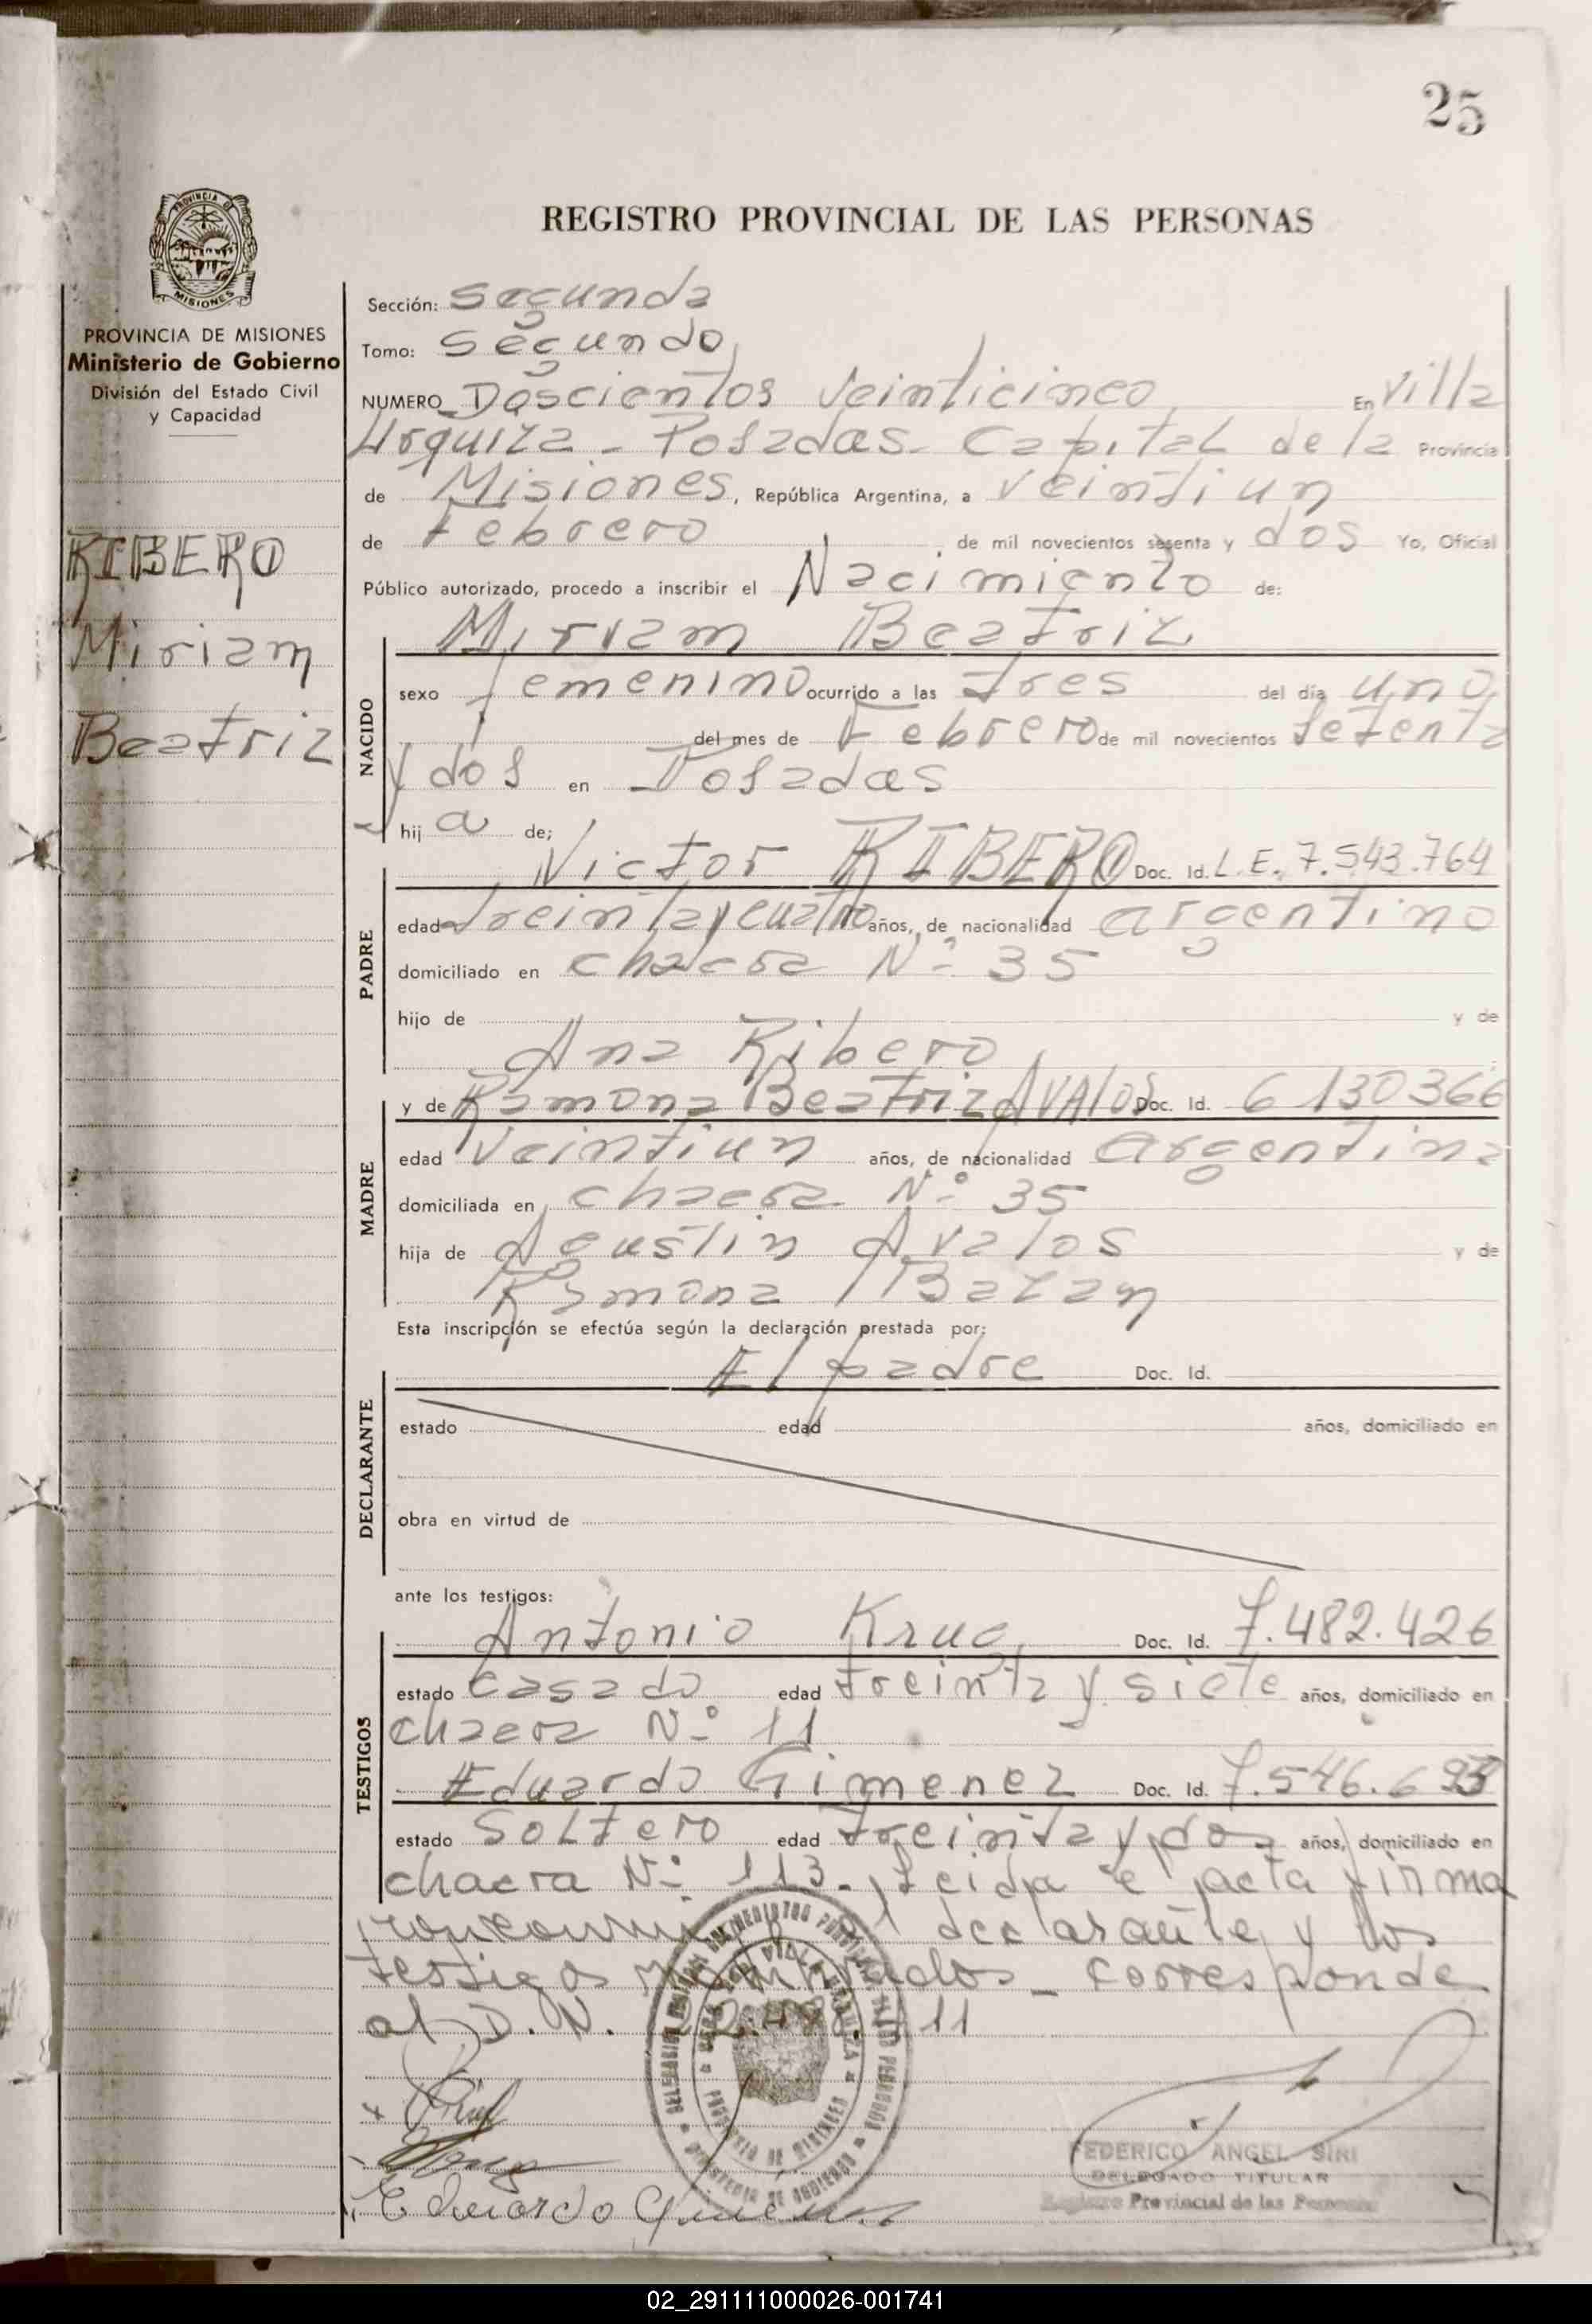 25
PROVINCIA DE
MISIONES
PROVINCIA DE MISIONES
Ministerio de Gobierno
División del Estado Civil
y Capacidad
RIBERO
Miriam
Beatriz
REGISTRO PROVINCIAL DE LAS PERSONAS
Sección: Segunda
Tomo: Segundo
NUMERO Doscientos Veinticinco En Villa
Urquiza - Posadas - Capital de la Provincia
de Misiones, República Argentina, a veintiun
de Febrero, de mil novecientos sesenta y dos Yo, Oficial
Público autorizado, procedo a inscribir el Nacimiento de:
Miriam Beatriz
NACIDO
sexo femenino ocurrido a las tres del día uno
del mes de Febrero de mil novecientos setenta
y dos en Posadas
hij a de;
Victor RIBERO Doc. Id. L.E. 7.543.764
PADRE
edad treinta y cuatro años, de nacionalidad argentino
domiciliado en chacra Nº 35
hijo de y de
Ana Ribero
y de Ramona Beatriz AVALOS Doc. Id. 6130366
MADRE
edad Veintiun años, de nacionalidad argentina
domiciliada en chacra Nº 35
hija de Agustin Avalos y de
Ramona Bazan
Esta inscripción se efectúa según la declaración prestada por:
El padre Doc. Id.
DECLARANTE
estado edad años, domiciliado en
obra en virtud de
ante los testigos:
Antonio Krug Doc. Id. 7.482.426
TESTIGOS
estado casado edad treinta y siete años, domiciliado en
chacra Nº 11
Eduardo Gimenez Doc. Id. 7.546.6
estado Soltero edad treinta y dos años, domiciliado en
chacra Nº 113 - Leida el acta firma
el declarante y los
testigos nombrados - corresponde
al D.N. 11
PROVINCIA DE MISIONES
MINISTERIO DE GOBIERNO
FEDERICO ANGEL SIRI
DELEGADO TITULAR
Registro Provincial de las Personas
Eduardo Gimenez
02_291111000026-001741